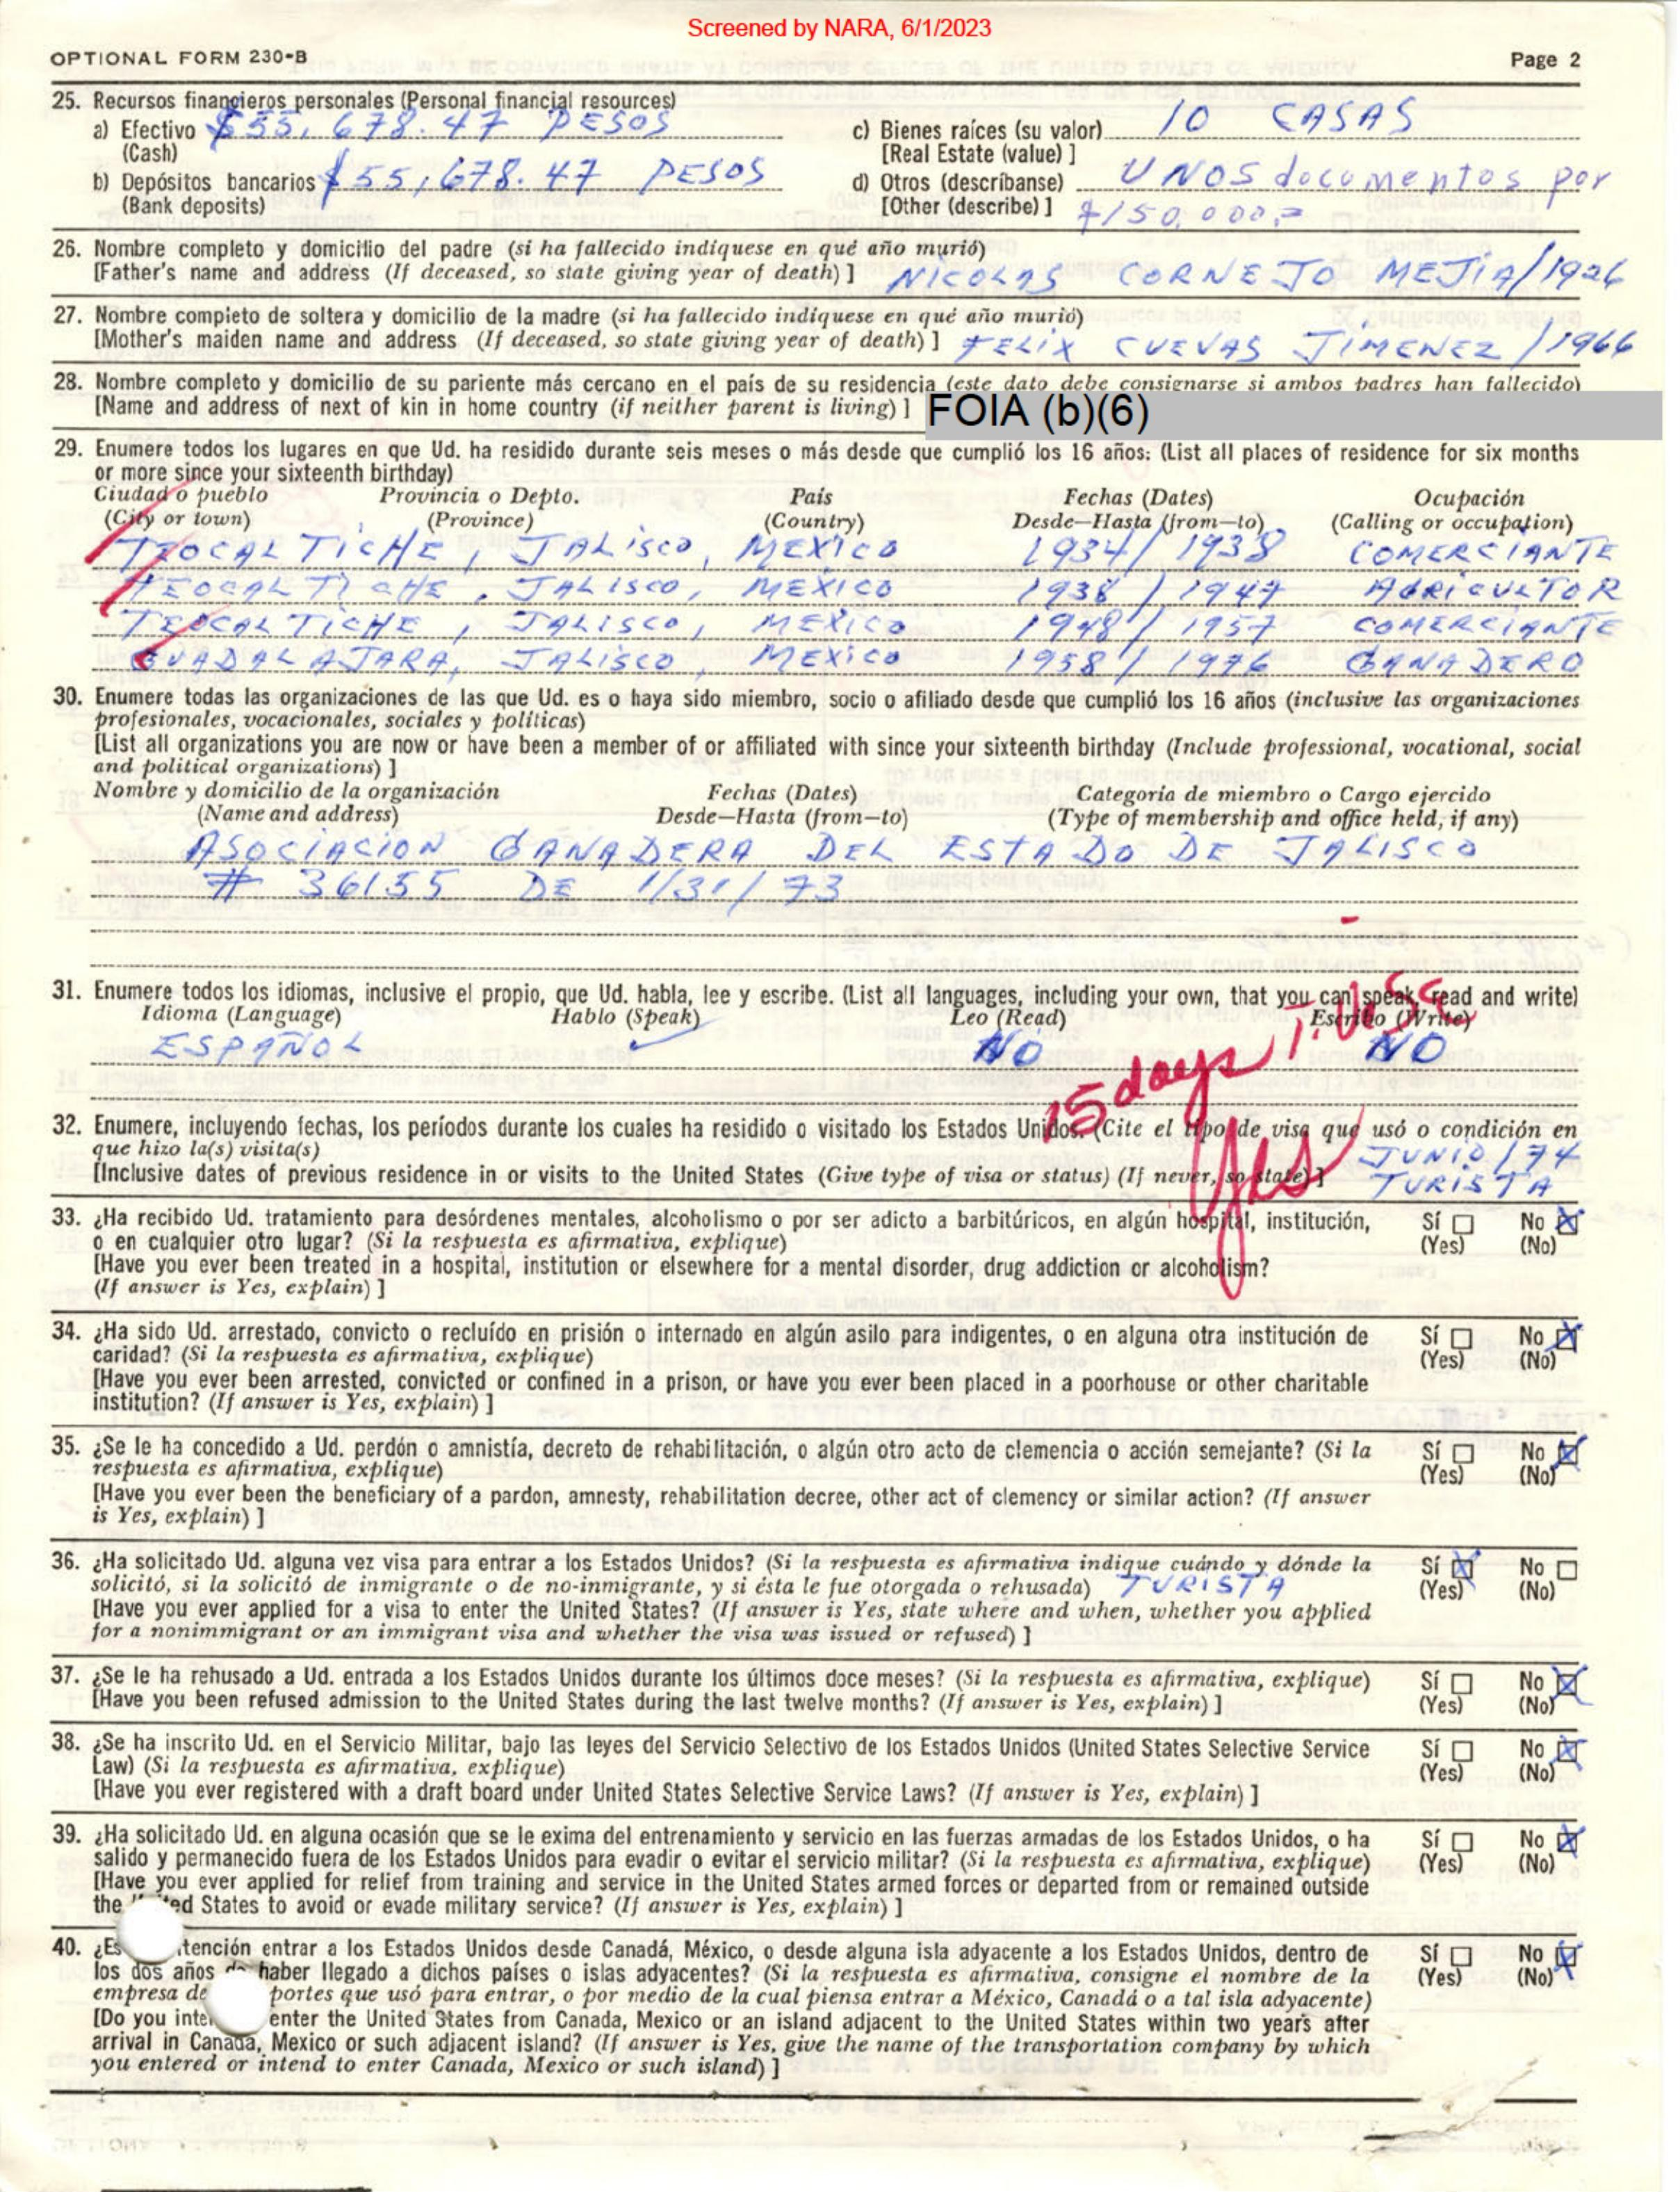 Screened by NARA, 6/1/2023
OPTIONAL FORM 230-B Page 2
25. Recursos financieros personales (Personal financial resources)
a) Efectivo $55,678.47 PESOS
(Cash)
b) Depósitos bancarios $55,678.47 PESOS
(Bank deposits)
c) Bienes raíces (su valor) 10 CASAS
[Real Estate (value) ]
d) Otros (descríbanse) UNOS documentos por
[Other (describe) ] $150,000.=
26. Nombre completo y domicilio del padre (si ha fallecido indíquese en qué año murió)
[Father's name and address (If deceased, so state giving year of death) ] NICOLAS CORNEJO MEJIA/1926
27. Nombre completo de soltera y domicilio de la madre (si ha fallecido indíquese en qué año murió)
[Mother's maiden name and address (If deceased, so state giving year of death) ] FELIX CUEVAS JIMENEZ /1966
28. Nombre completo y domicilio de su pariente más cercano en el país de su residencia (este dato debe consignarse si ambos padres han fallecido)
[Name and address of next of kin in home country (if neither parent is living) ] FOIA (b)(6)
29. Enumere todos los lugares en que Ud. ha residido durante seis meses o más desde que cumplió los 16 años: (List all places of residence for six months
or more since your sixteenth birthday)
Ciudad o pueblo Provincia o Depto. País Fechas (Dates) Ocupación
(City or town) (Province) (Country) Desde—Hasta (from—to) (Calling or occupation)
TEOCALTICHE, JALISCO, MEXICO 1934/1938 COMERCIANTE
TEOCALTICHE, JALISCO, MEXICO 1938/1947 AGRICULTOR
TEOCALTICHE, JALISCO, MEXICO 1948/1957 COMERCIANTE
GUADALAJARA, JALISCO, MEXICO 1958/1976 GANADERO
30. Enumere todas las organizaciones de las que Ud. es o haya sido miembro, socio o afiliado desde que cumplió los 16 años (inclusive las organizaciones
profesionales, vocacionales, sociales y políticas)
[List all organizations you are now or have been a member of or affiliated with since your sixteenth birthday (Include professional, vocational, social
and political organizations) ]
Nombre y domicilio de la organización Fechas (Dates) Categoría de miembro o Cargo ejercido
(Name and address) Desde—Hasta (from—to) (Type of membership and office held, if any)
ASOCIACION GANADERA DEL ESTADO DE JALISCO
# 36155 DE 1/31/73
31. Enumere todos los idiomas, inclusive el propio, que Ud. habla, lee y escribe. (List all languages, including your own, that you can speak, read and write)
Idioma (Language) Hablo (Speak) Leo (Read) Escribo (Write)
ESPAÑOL ✓ NO NO
15 days
Yes
32. Enumere, incluyendo fechas, los períodos durante los cuales ha residido o visitado los Estados Unidos. (Cite el tipo de visa que usó o condición en
que hizo la(s) visita(s) JUNIO/74
[Inclusive dates of previous residence in or visits to the United States (Give type of visa or status) (If never, so state) ] TURISTA
33. ¿Ha recibido Ud. tratamiento para desórdenes mentales, alcoholismo o por ser adicto a barbitúricos, en algún hospital, institución, Sí ☐ No ☒
o en cualquier otro lugar? (Si la respuesta es afirmativa, explique) (Yes) (No)
[Have you ever been treated in a hospital, institution or elsewhere for a mental disorder, drug addiction or alcoholism?
(If answer is Yes, explain) ]
34. ¿Ha sido Ud. arrestado, convicto o recluído en prisión o internado en algún asilo para indigentes, o en alguna otra institución de Sí ☐ No ☒
caridad? (Si la respuesta es afirmativa, explique) (Yes) (No)
[Have you ever been arrested, convicted or confined in a prison, or have you ever been placed in a poorhouse or other charitable
institution? (If answer is Yes, explain) ]
35. ¿Se le ha concedido a Ud. perdón o amnistía, decreto de rehabilitación, o algún otro acto de clemencia o acción semejante? (Si la Sí ☐ No ☒
respuesta es afirmativa, explique) (Yes) (No)
[Have you ever been the beneficiary of a pardon, amnesty, rehabilitation decree, other act of clemency or similar action? (If answer
is Yes, explain) ]
36. ¿Ha solicitado Ud. alguna vez visa para entrar a los Estados Unidos? (Si la respuesta es afirmativa indique cuándo y dónde la Sí ☒ No ☐
solicitó, si la solicitó de inmigrante o de no-inmigrante, y si ésta le fue otorgada o rehusada) TURISTA (Yes) (No)
[Have you ever applied for a visa to enter the United States? (If answer is Yes, state where and when, whether you applied
for a nonimmigrant or an immigrant visa and whether the visa was issued or refused) ]
37. ¿Se le ha rehusado a Ud. entrada a los Estados Unidos durante los últimos doce meses? (Si la respuesta es afirmativa, explique) Sí ☐ No ☒
[Have you been refused admission to the United States during the last twelve months? (If answer is Yes, explain) ] (Yes) (No)
38. ¿Se ha inscrito Ud. en el Servicio Militar, bajo las leyes del Servicio Selectivo de los Estados Unidos (United States Selective Service Sí ☐ No ☒
Law) (Si la respuesta es afirmativa, explique) (Yes) (No)
[Have you ever registered with a draft board under United States Selective Service Laws? (If answer is Yes, explain) ]
39. ¿Ha solicitado Ud. en alguna ocasión que se le exima del entrenamiento y servicio en las fuerzas armadas de los Estados Unidos, o ha Sí ☐ No ☒
salido y permanecido fuera de los Estados Unidos para evadir o evitar el servicio militar? (Si la respuesta es afirmativa, explique) (Yes) (No)
[Have you ever applied for relief from training and service in the United States armed forces or departed from or remained outside
the ed States to avoid or evade military service? (If answer is Yes, explain) ]
40. ¿Es tención entrar a los Estados Unidos desde Canadá, México, o desde alguna isla adyacente a los Estados Unidos, dentro de Sí ☐ No ☒
los dos años de haber llegado a dichos países o islas adyacentes? (Si la respuesta es afirmativa, consigne el nombre de la (Yes) (No)
empresa de portes que usó para entrar, o por medio de la cual piensa entrar a México, Canadá o a tal isla adyacente)
[Do you inte enter the United States from Canada, Mexico or an island adjacent to the United States within two years after
arrival in Canada, Mexico or such adjacent island? (If answer is Yes, give the name of the transportation company by which
you entered or intend to enter Canada, Mexico or such island) ]